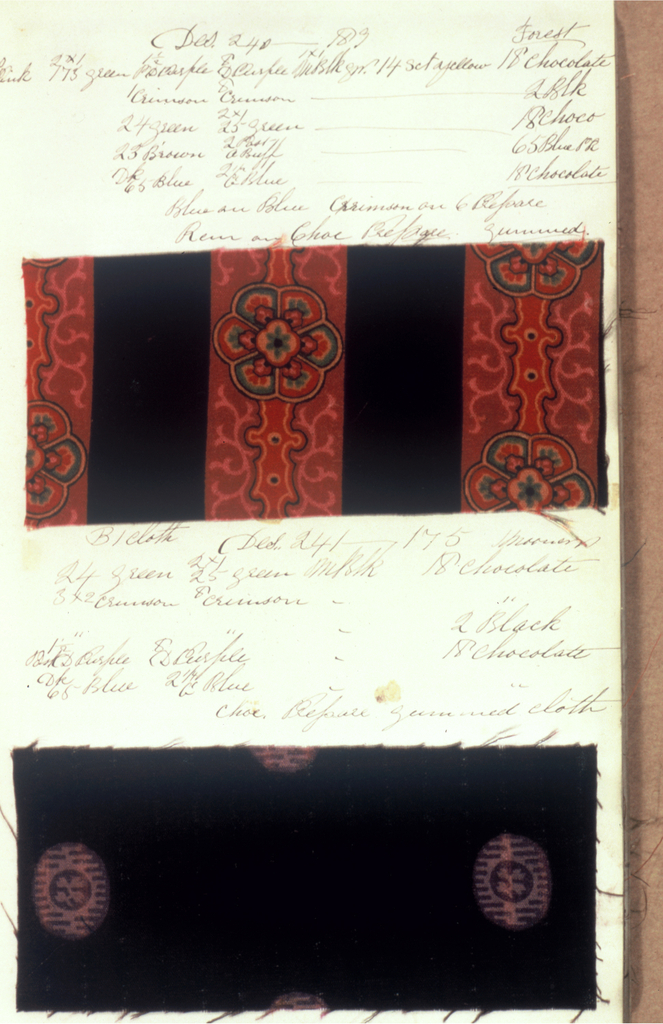 Des. 240 — 189 Forest
Pink 2x1 175 green Purple Purple Blk 14 Set yellow 18 Chocolate
Crimson 8 Crimson 2 Blk
24 green 2x1 25 green 18 Choco
23 Brown Buff 65 Blue PR
Dk 65 Blue Blue 18 Chocolate
Blue on Blue Crimson on 6 Prepare
Rem on Choc Prepare. gummed.
Bl cloth Des. 241 — 175
24 green 2x1 25 green Blk 18 Chocolate
3x2 crimson 8 crimson "
" " 2 Black
D Purple 8 D Purple 18 Chocolate
Dk 65 Blue Blue "
Choc. Prepare gummed cloth